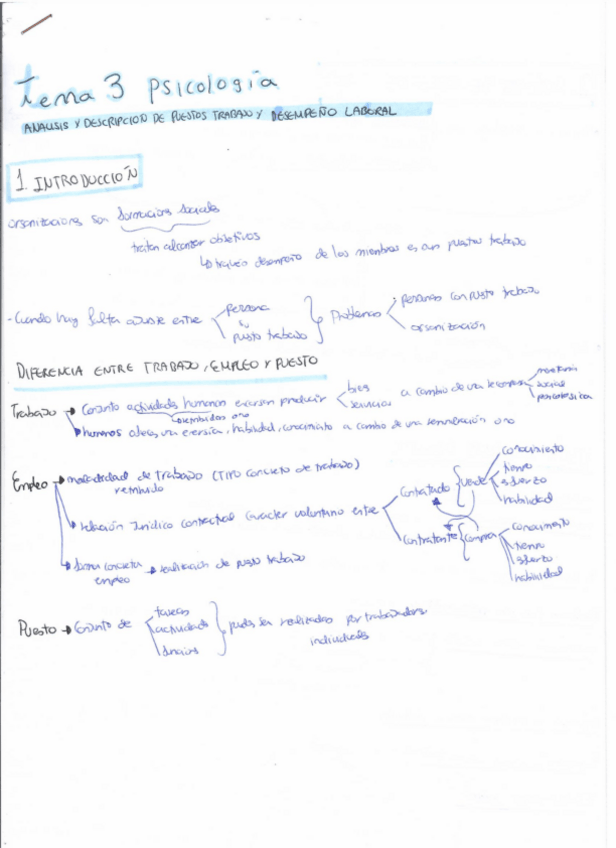 tema 3 psicología
ANALISIS Y DESCRIPCION DE PUESTOS TRABAJO Y DESEMPEÑO LABORAL
1. INTRODUCCIÓN
organizaciones son formaciones sociales
tratan alcanzar objetivos
desempeño de los miembros en puestos trabajo
- Cuando hay falta ajuste entre
persona
puesto trabajo
Problemas
personas con puesto trabajo
organización
DIFERENCIA ENTRE TRABAJO, EMPLEO Y PUESTO
Trabajo → Conjunto actividades humanas producir
bies
servicios
a cambio de una
social
psicologica
humanos una energia, habilidad, conocimiento a cambio de una
Empleo → modalidad de trabajo (TIPO concreto de trabajo)
retribuido
relación Juridico contractual caracter voluntario entre
contratado
vende
conocimiento
tiempo
esfuerzo
habilidad
contratante
compra
conocimiento
tiempo
esfuerzo
habilidad
forma concreta
empleo
→ realización de puesto trabajo
Puesto → Conjunto de
tareas
actividades
puedes ser realizadas por trabajadores
individuales